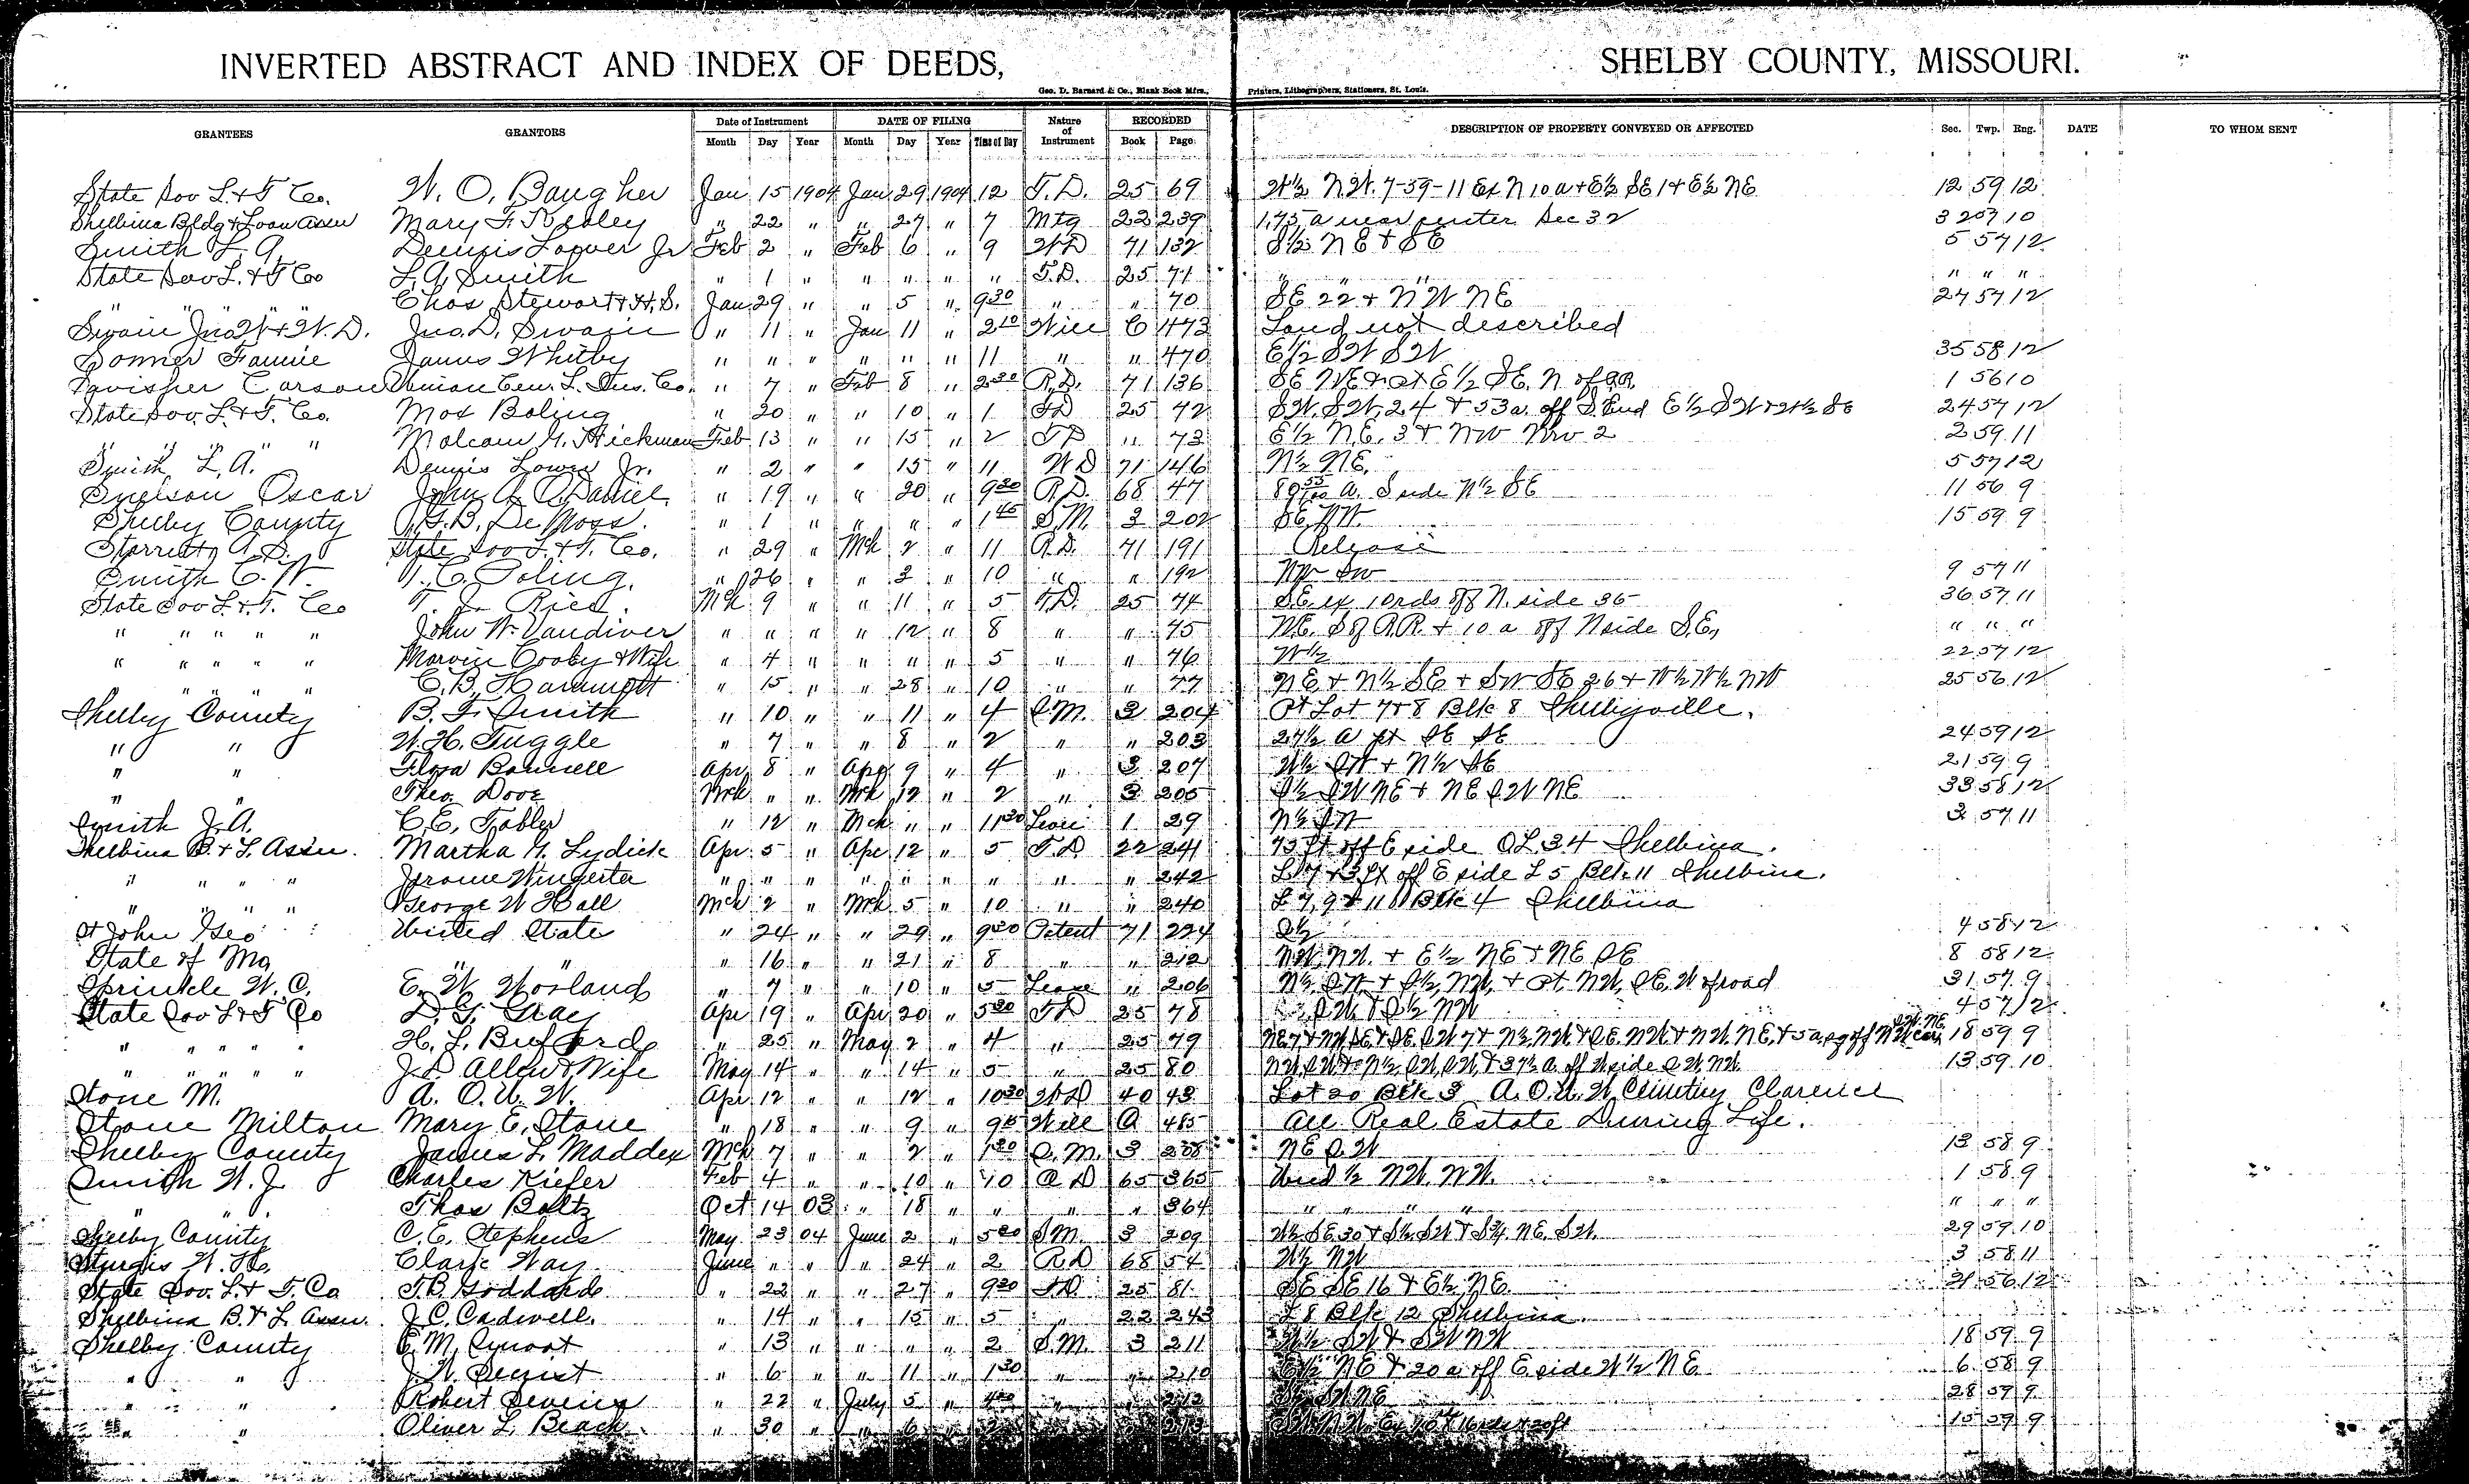 INVERTED ABSTRACT AND INDEX OF DEEDS, SHELBY COUNTY, MISSOURI.
Geo. D. Barnard & Co., Blank Book Mfrs., Printers, Lithographers, Stationers, St. Louis.
GRANTEES GRANTORS Date of Instrument DATE OF FILING Nature of Instrument RECORDED DESCRIPTION OF PROPERTY CONVEYED OR AFFECTED Sec. Twp. Rng. DATE TO WHOM SENT
Month Day Year Month Day Year Time of Day Book Page
State Sav L. & T Co. W. O. Baugher Jan 15 1904 Jan 29 1904 12 T. D. 25 69 W½ NW. 7-59-11 Ex N 10 a & E½ SE 1 & E½ NE 12 59 12
Shelbina Bldg & Loan Assn Mary F. " 22 " " 27 " 7 Mtg 22 239 1.75 a near center Sec 32 32 57 10
Smith L. A. Dennis Lower Jr Feb 2 " Feb 6 " 9 WD 71 132 S½ NE & SE 5 57 12
State Sav L. & T Co L. A. Smith " 1 " " " " " T. D. 25 71 " " " " " "
" " " " Chas Stewart & H. S. Jan 29 " " 5 " 9 30 " " 70 SE 22 & NW NE 27 57 12
Swain Jno W & W. D. Jno. D. Swain " 11 " Jan 11 " 2 10 Will C 473 Land not described
Fannie James Whitby " " " " " " 11 " " 470 E½ SW SW 35 58 12
Carson Union Cen. L. Ins. Co. " 7 " Feb 8 " 2 30 R. D. 71 136 SE NE & pt E½ SE. N of R.R. 1 56 10
State Sav. L. & T. Co. Max Boling " 20 " " 10 " 1 TD 25 72 SW. SW. 24 & 53 a. off S. End E½ SW & W½ SE 24 57 12
" " " " Malcom G. Hickman Feb 13 " " 15 " 2 TD " 73 E½ N.E. 3 & NW NW 2 2 59 11
Smith L. A. Dennis Lower Jr. " 2 " " 15 " 11 WD 71 146 N½ NE. 5 57 12
Snelson Oscar John A. O'Daniel " 19 " " 20 " 9 20 R. D. 68 47 80 55/100 A. S side N½ SE 11 56 9
Shelby County J. B. De Moss. " 1 " " " " 1 45 S. M. 3 202 SE NW. 15 59 9
Starrett A. S. State Sav L. & T. Co. " 29 " Mch 2 " 11 R. D. 71 191 Release
Smith C. W. T. C. Poling. " 26 " " 3 " 10 " " 192 NW SW 9 57 11
State Sav L. & T. Co T. J. Rice. Mch 9 " " 11 " 5 T. D. 25 74 S.E. ex 10 rds off N. side 36 36 57 11
" " " " " John W. Vandiver " " " " 12 " 8 " " 75 N.E. S of R.R. & 10 a off N side S.E. " " "
" " " " " Marvin Cooby & Wife " 4 " " " " 5 " " 76 W½ 22 57 12
" " " " " C. B. " 15 " " 28 " 10 " " 77 NE & N½ SE & SW SE 26 & W½ W½ NW 25 56 12
Shelby County B. F. Smith " 10 " " 11 " 4 S. M. 3 204 Pt Lot 7 & 8 Blk 8 Shelbyville.
" " W. H. Tuggle " 7 " " 8 " 2 " " 203 27½ a pt SE SE 24 59 12
" " Flora Bonnell Apr 8 " Apr 9 " 4 " 3 207 W½ SW & N½ SE 21 59 9
" " Theo. Mch " " Mch 12 " 2 " 3 205 S½ SW NE & NE SW NE 33 58 12
Smith J. A. C. E. Tobler " 12 " Mch " " 11 30 1 29 N½ SW 3 57 11
Shelbina B. & L. Assn. Martha M. Lydick Apr 5 " Apr 12 " 5 T. D. 22 241 75 ft off E side OL 34 Shelbina.
" " " " Jerome " " " " " " " " " 242 L 7 & 3 ft off E side L 5 Blk 11 Shelbina.
" " " " George W Hall Mch 2 " Mch 5 " 10 " " 240 L 7, 9 & 11 Blk 4 Shelbina
St John Geo United State " 24 " " 29 " 9 30 Patent 71 224 S½ 4 58 12
State of Mo " " " 16 " " 21 " 8 " " 212 NW NW. & E½ NE & NE SE 8 58 12
Sprinkle W. C. E. W. Worland " 7 " " 10 " 5 Lease " 206 N½ SW & S½ NW, & Pt. NW, SE, W of road 31 57 9
State Sav L & T Co D. G. Gray Apr 19 " Apr 20 " 5 30 TD 25 78 SW & S½ NW 4 57 12
" " " " H. L. Buford " 25 " May 2 " 4 " 25 79 SW. NE. 18 59 9
" " " " " J. D. Allen & Wife May 14 " " 14 " 5 " 25 80 NW SW & N½ SW SW & 37½ a. off W side SW. NW. 13 59 10
Stone M. A. O. U. W. Apr 12 " " 12 " 10 30 WD 40 43 Lot 20 Blk 3 A. O. U. W Cemetery Clarence
Stone Milton Mary E. Stone " 18 " " 9 " 9 Will A 485 All Real Estate During Life.
Shelby County James L. Maddex Mch 7 " " 2 " 1 30 S. M. 3 208 NE SW 13 58 9
Smith W. J. Charles Kiefer Feb 4 " " 10 " 10 Q D 65 365 Und ½ NW. NW. 1 58 9
" " Thos Boltz Oct 14 03 " 18 " " " " 364 " " " " " " "
Shelby County C. E. Stephens May 23 04 June 2 " 5 30 S M. 3 209 W½ SE 30 & S½ SW & S¾ NE. SW. 29 59 10
Sturgis W. H. Clark Way June " " " 24 " 2 R D 68 54 W½ NW 3 58 11
State Sav. L. & T. Co T. B. Goddard " 22 " " 27 " 9 30 T D. 25 81 SE SE 16 & E½ NE. 21 56 12
Shelbina B. & L. Assn. J. C. Cadwell. " 14 " " 15 " 5 " 22 243 L 8 Blk 12 Shelbina.
Shelby County E. M. " 13 " " " " 2 S. M. 3 211 W½ SW & SW NW 18 59 9
" " J. W. " 6 " " 11 " 1 30 " " 210 E½ NE & 20 a. off E side W½ NE 6 58 9
" " Robert " 22 " July 5 " " " 212 SW NE 28 59 9
" " Oliver L. Beach " 30 " " 6 " 2 " 213 15 59 9